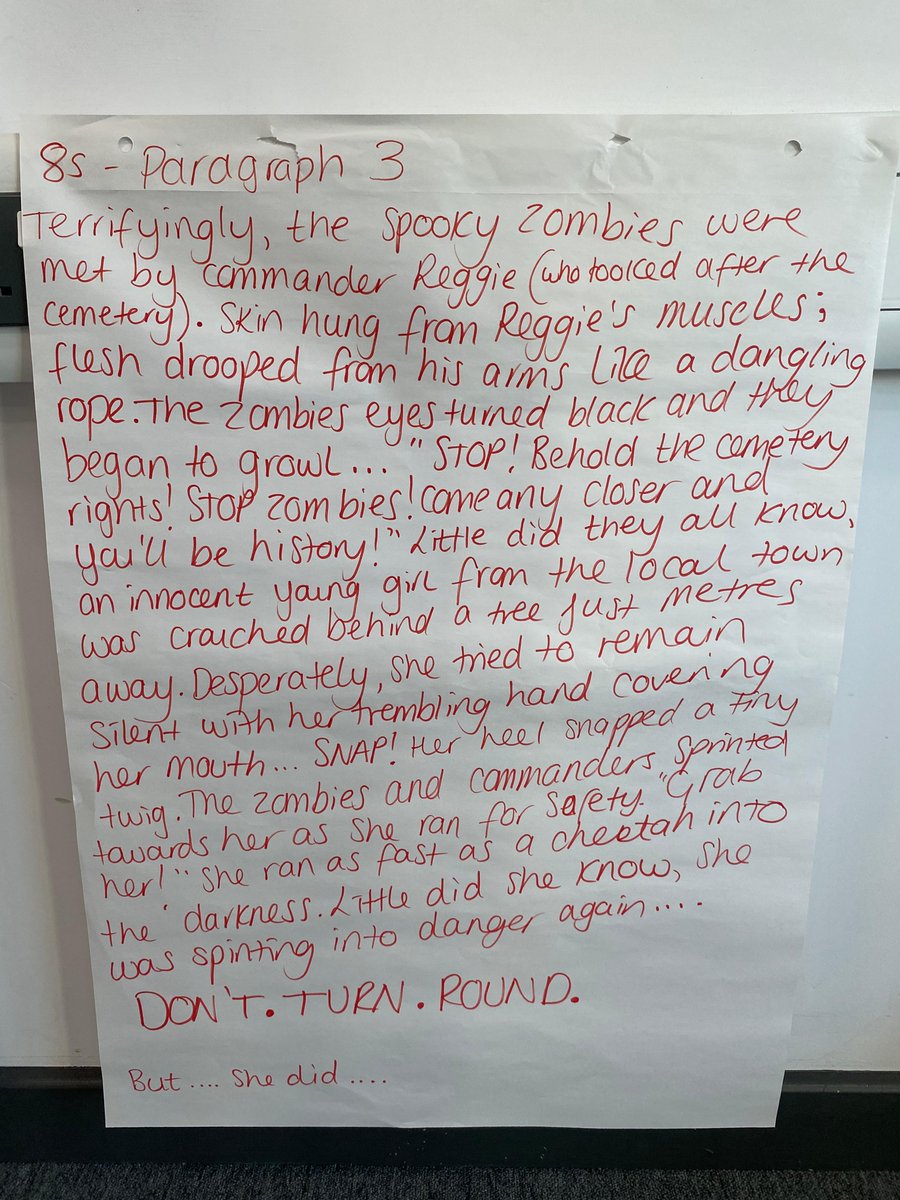 8s - Paragraph 3
Terrifyingly, the spooky zombies were
met by commander Reggie (who looked after the
cemetery). Skin hung from Reggie's muscles;
flesh drooped from his arms like a dangling
rope. The zombies eyes turned black and they
began to growl... "STOP! Behold the cemetery
rights! STOP zombies! Come any closer and
you'll be history!" Little did they all know,
an innocent young girl from the local town
was crouched behind a tree just metres
away. Desperately, she tried to remain
silent with her trembling hand covering
her mouth... SNAP! Her heel snapped a tiny
twig. The zombies and commanders sprinted
towards her as she ran for safety. "Grab
her!" She ran as fast as a cheetah into
the darkness. Little did she know, she
was spinting into danger again....
DON'T. TURN. ROUND.
But .... she did ....